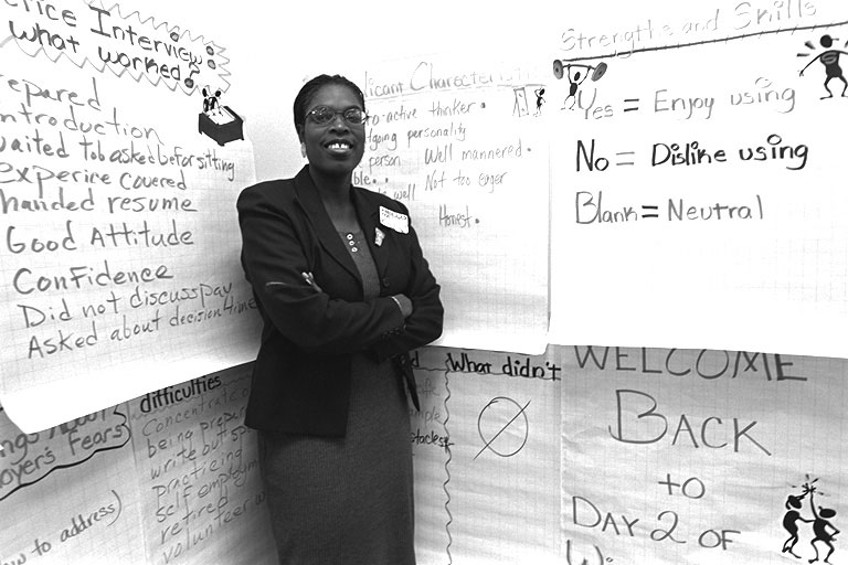 Interview:
what worked?
repared
ntroduction
waited to b asked befor sitting
experice covered
handed resume
Good Attitude
Confidence
Did not discuss pay
Asked about decision time
licant Characteristi
o-active thinker.
tgoing personality
person Well mannered.
ble..
well Not too eager
Honest.
Strengths and Skills
Yes = Enjoy using
No = Dislike using
Blank = Neutral
ngs About
oyer's Fears
ow to address)
difficulties
Concentrate o
being prepar
write out sp
practicing
self employm
retired
volunteer w
What didn't
stacles
WELCOME
BACK
to
DAY 2 OF